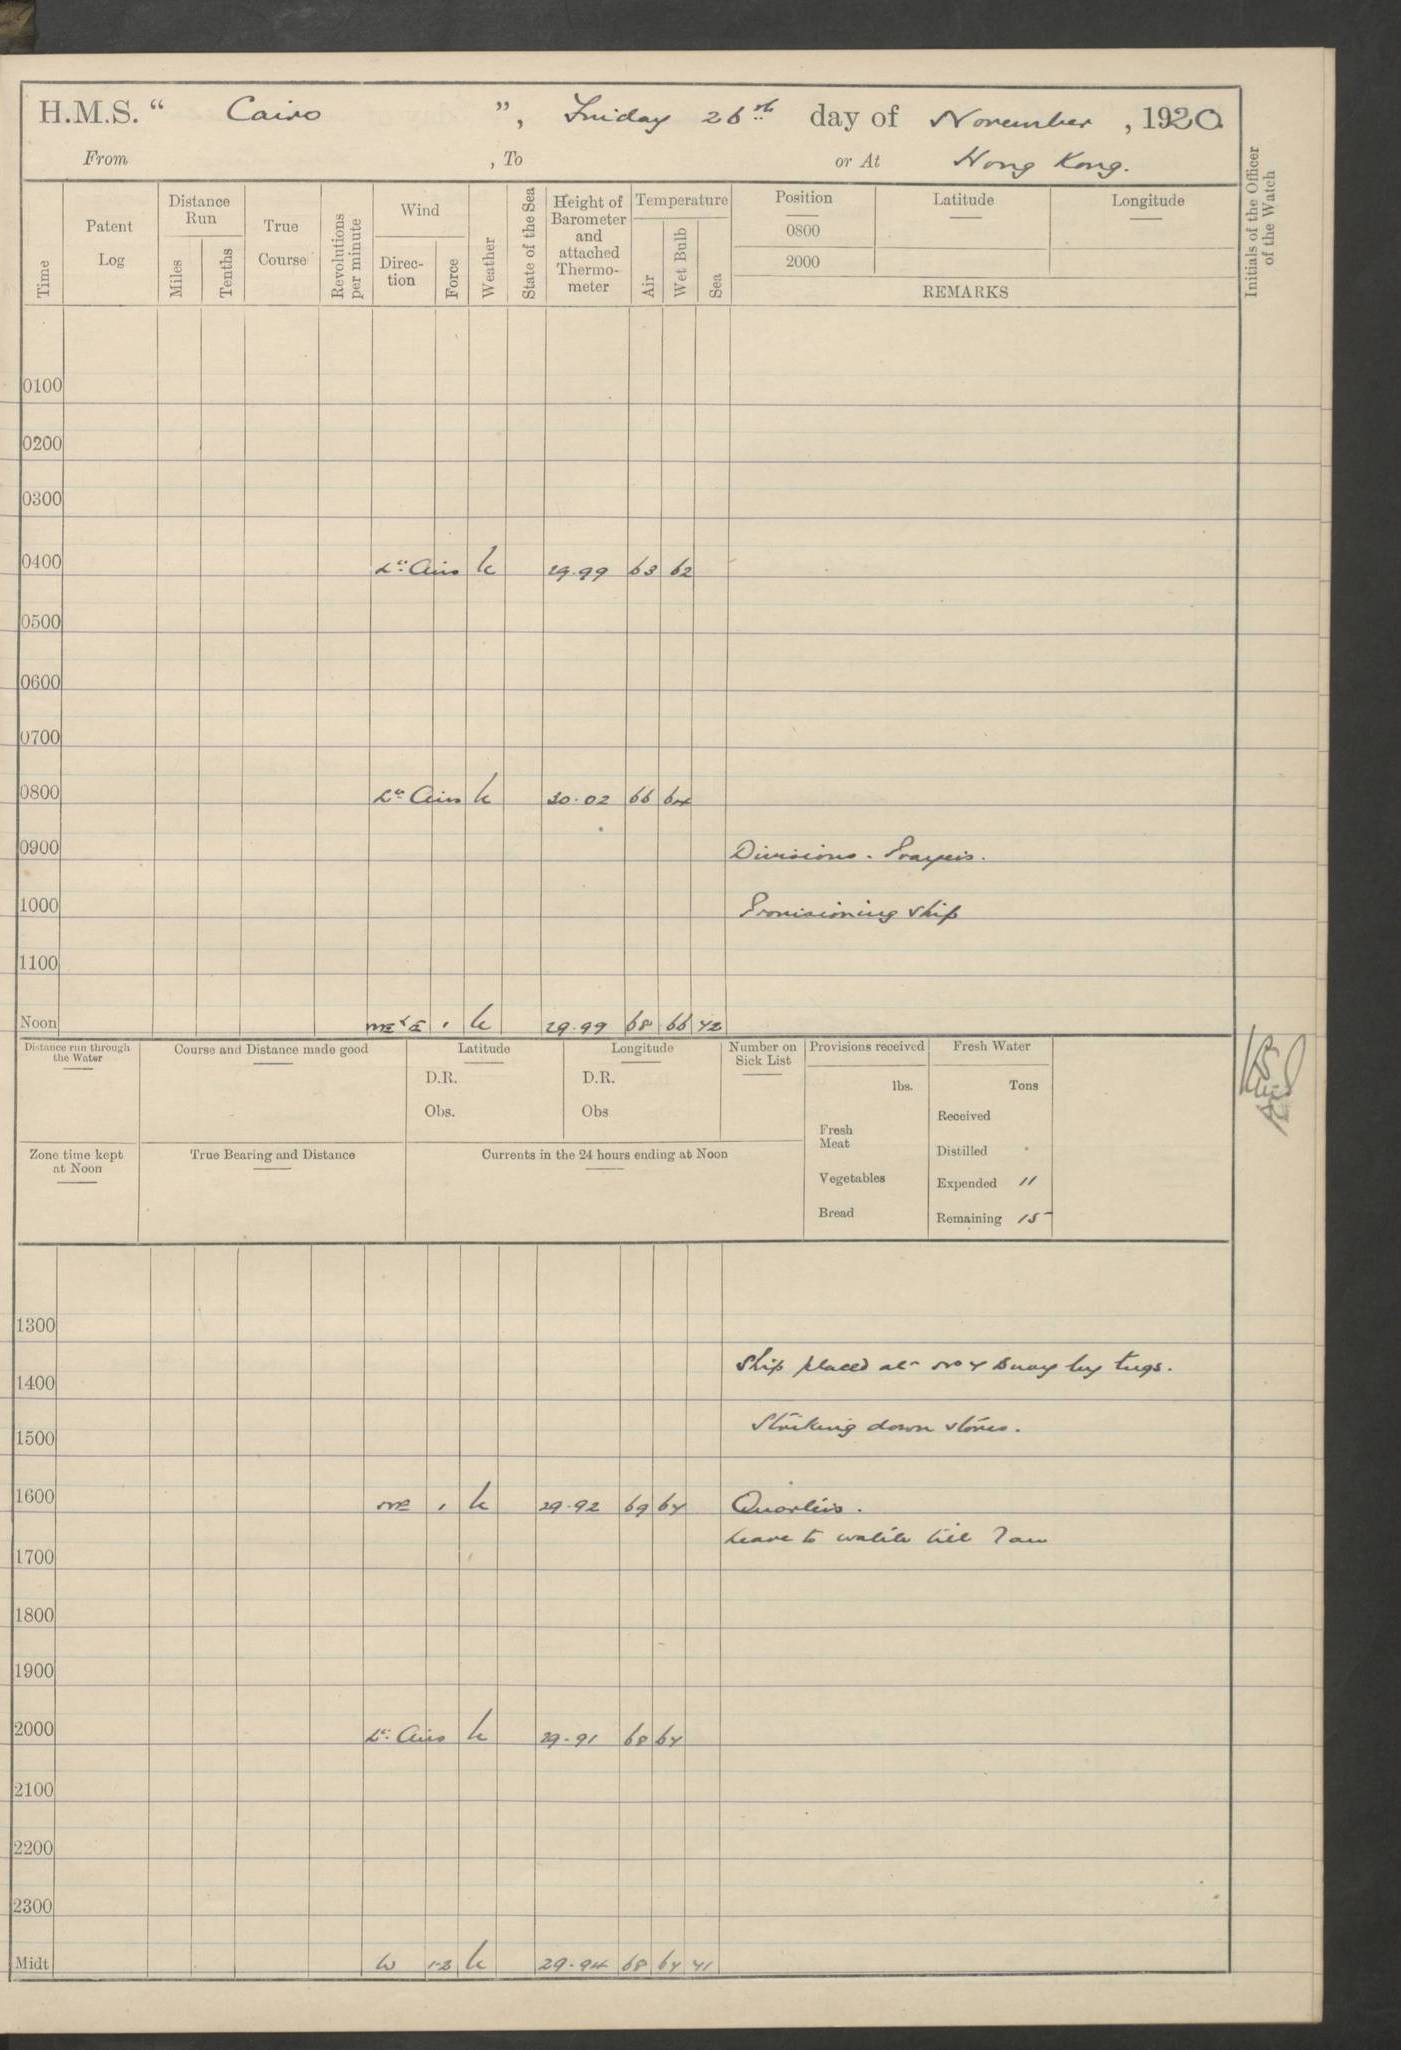 H.M.S. “ Cairo ”, Friday 26th day of November, 1920
From , To or At Hong Kong.
Time
Patent Log
Distance Run
Miles
Tenths
True Course
Revolutions per minute
Wind
Direction
Force
Weather
State of the Sea
Height of Barometer and attached Thermometer
Temperature
Air
Wet Bulb
Sea
Position
0800
2000
Latitude
Longitude
REMARKS
Initials of the Officer of the Watch
0100
0200
0300
0400 Lt Airs 29.99 63 62
0500
0600
0700
0800 Lt Airs 30.02 66 64
0900 Divisions. Prayers.
1000 Provisioning ship
1100
Noon NE x E 1 29.99 68 66 72
Distance run through the Water
Course and Distance made good
Latitude
D.R.
Obs.
Longitude
D.R.
Obs
Number on Sick List
Provisions received
lbs.
Fresh Meat
Vegetables
Bread
Fresh Water
Tons
Received
Distilled
Expended 11
Remaining 15
Zone time kept at Noon
True Bearing and Distance
Currents in the 24 hours ending at Noon
1300
Ship placed at No Buoy by tugs.
1400
Striking down stores.
1500
1600 NE 1 29.92 69 67 Quarters.
Leave to watch till 7am
1700
1800
1900
2000 Lt Airs 29.91 68 67
2100
2200
2300
Midt W 1-2 29.94 68 67 71